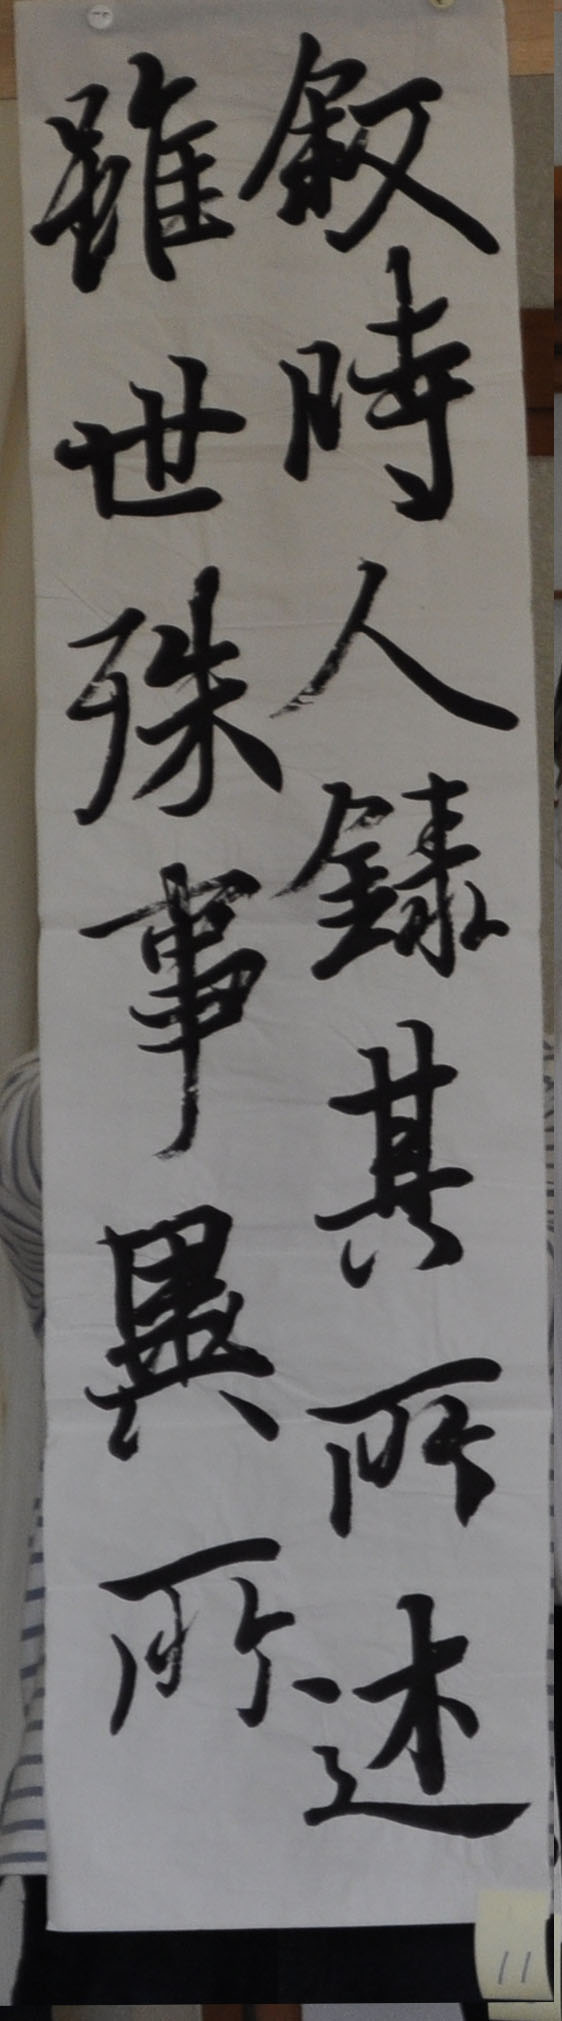 叙時人録其所述
雖世殊事異所
11